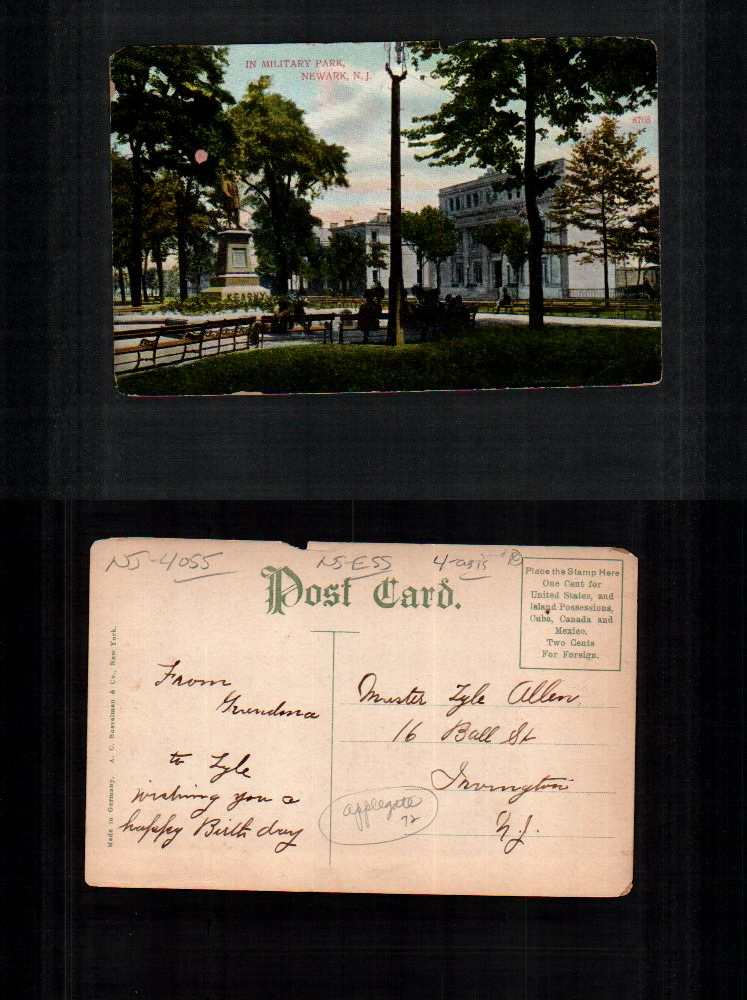 IN MILITARY PARK,
NEWARK, N.J.
8705
KEARNY
NJ-4055 NJ-ESS 4-asis
Post Card.
Place the Stamp Here
One Cent for
United States, and
Island Possessions,
Cuba, Canada and
Mexico.
Two Cents
For Foreign.
Made in Germany. A. C. Bosselman & Co., New York.
From
Grandma
to Lyle
wishing you a
happy Birth day
Master Lyle Allen
16 Ball St
Irvington
N.J.
applegate
72